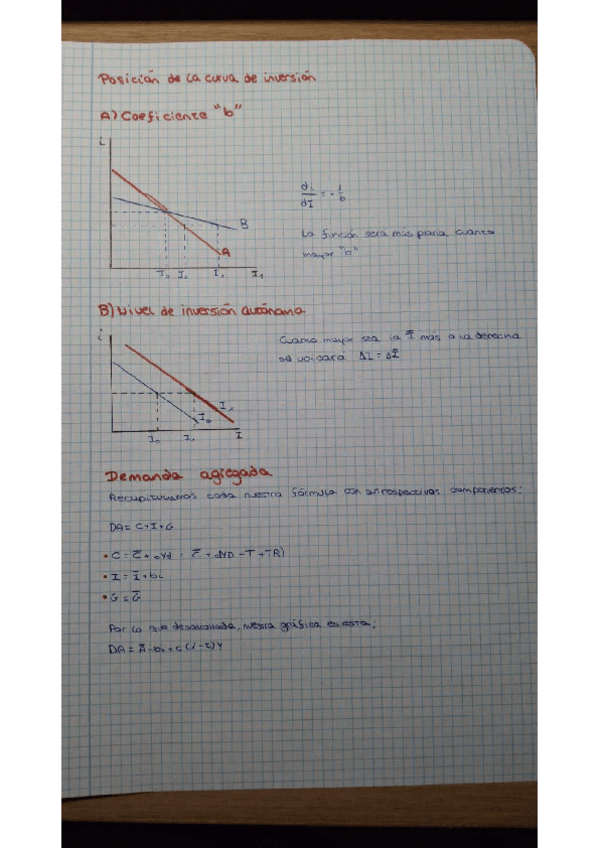 Posición de la curva de inversión
A) Coeficiente "b"
i
di/dI = - 1/b
La función será más plana cuanto
mayor "b"
B
A
I₀ I₁ I₁ I₁
B) Nivel de inversión autónoma
i
Cuanto mayor sea la Ī más a la derecha
se ubicará ΔI = ΔĪ
I₁
I₀
I₀ I₁ I
Demanda agregada
Recapitulamos cada nuestra fórmula con sus respectivos componentes:
DA = C+I+G
• C = C̄ + cYd = C̄ + (YD - T + TR)
• I = Ī + bi
• G = Ḡ
Por lo que desarrollada, nuestra gráfica es esta:
DA = Ā - bi + c(1-t)Y